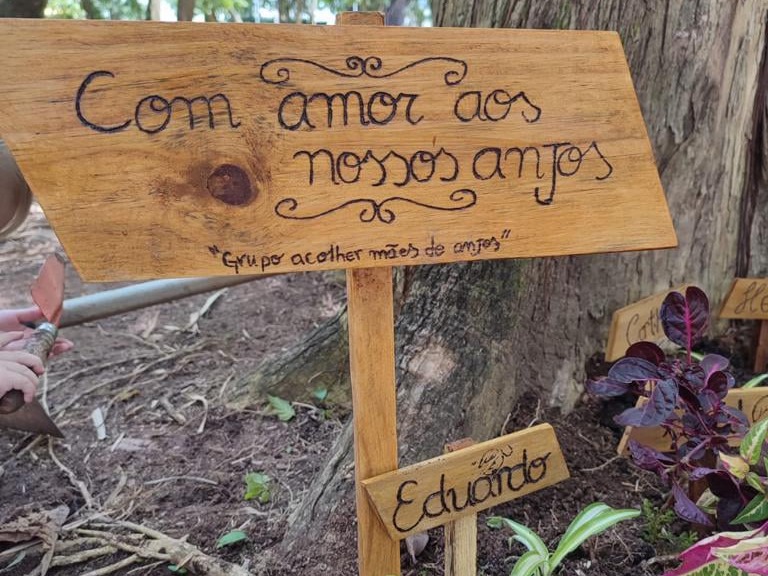 Com amor aos
nossos anjos
"Grupo acolher mães de anjos"
Eduardo